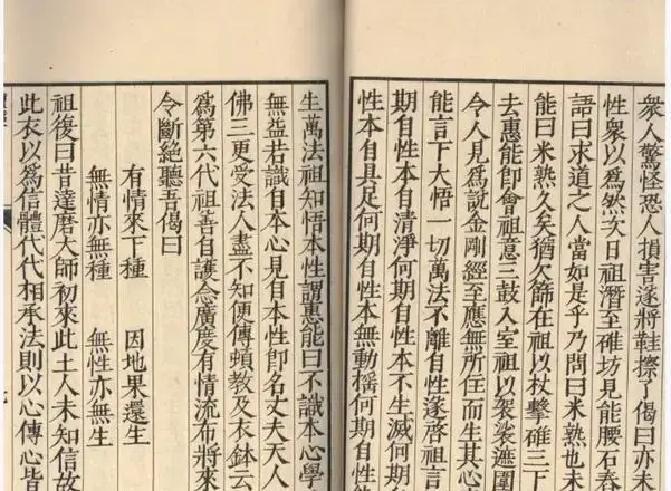 衆人驚怪恐人損害遂將鞋擦了偈曰亦未
性衆以爲然次日祖潛至碓坊見能腰石舂
語曰求道之人當如是乎乃問曰米熟也未
能曰米熟久矣猶欠篩在祖以杖擊碓三下
去惠能即會祖意三鼓入室祖以袈裟遮圍
令人見爲說金剛經至應無所住而生其心
能言下大悟一切萬法不離自性遂啓祖言
期自性本自清淨何期自性本不生滅何期自
性本自具足何期自性本無動搖何期自性能
生萬法祖知悟本性謂惠能曰不識本心學
無益若識自本心見自本性即名丈夫天人
佛三更受法人盡不知便傳頓教及衣鉢云
爲第六代祖善自護念廣度有情流布將來
令斷絶聽吾偈曰
有情來下種 因地果還生
無情亦無種 無性亦無生
祖復曰昔達磨大師初來此土人未知信故
此衣以爲信體代代相承法則以心傳心皆